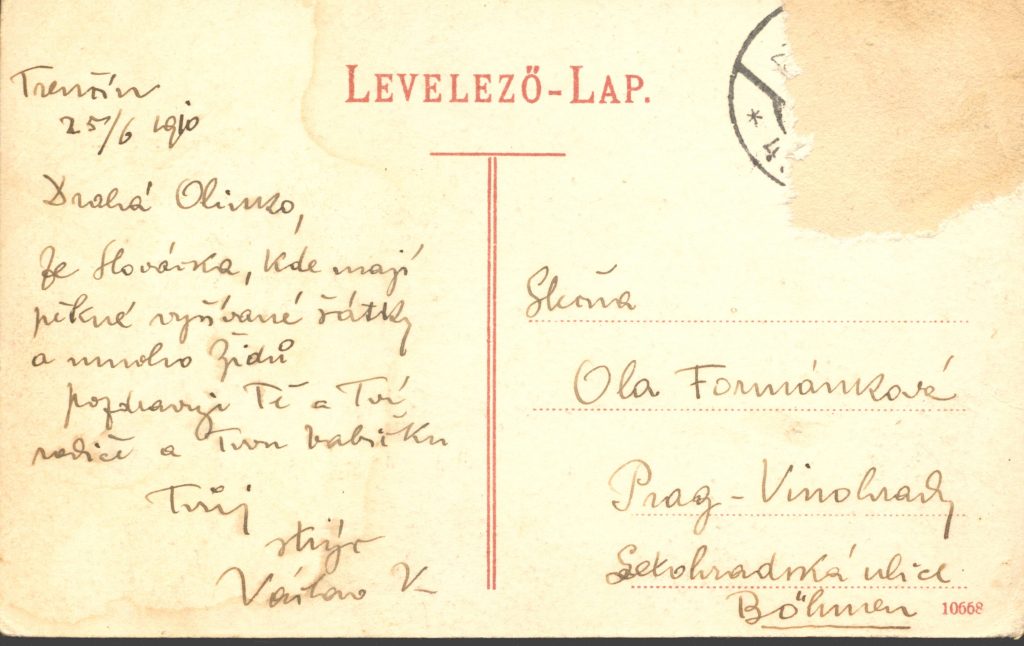 LEVELEZŐ-LAP.
Trenčín
25/6 1910
Drahá Olinko,
Ze Slovácka, kde mají
pěkné vyšívané šátky
a mnoho Židů
pozdravuji Tě a Tvé
rodiče a Tvou babičku
Tvůj
strýc
Václav V.
Slečna
Ola Formánková
Prag - Vinohrady
Letohradská ulice
Böhmen
10668
* 4.